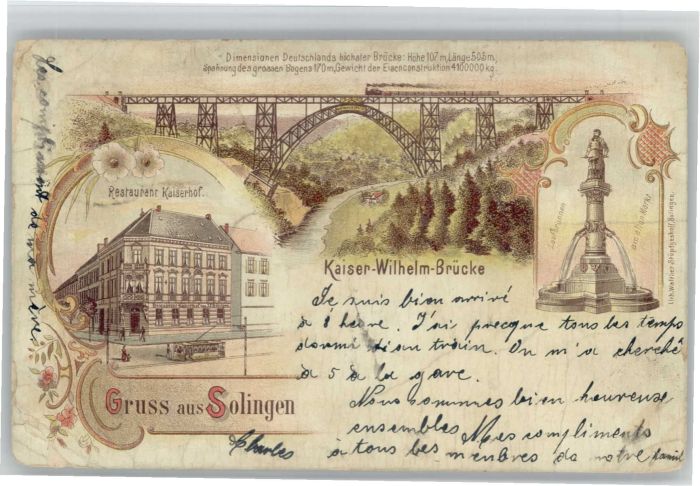 Dimensionen Deutschlands höchster Brücke: Höhe 107 m, Länge 505 m,
Spannung des grossen Bogens 170 m, Gewicht der Eisenconstruktion 4100000 kg.
Restaurant Kaiserhof.
Kaiser-Wilhelm-Brücke
am alten Markt
Gruss aus Solingen
Je suis bien arrivé
à 8 heure. J'ai presque tous les temps
dormi dian train. On m'a cherché
a 5 a la gare.
Nous sommes bien heureuse
ensembles Mes compliments
à tous les membres da notre famil
Charles